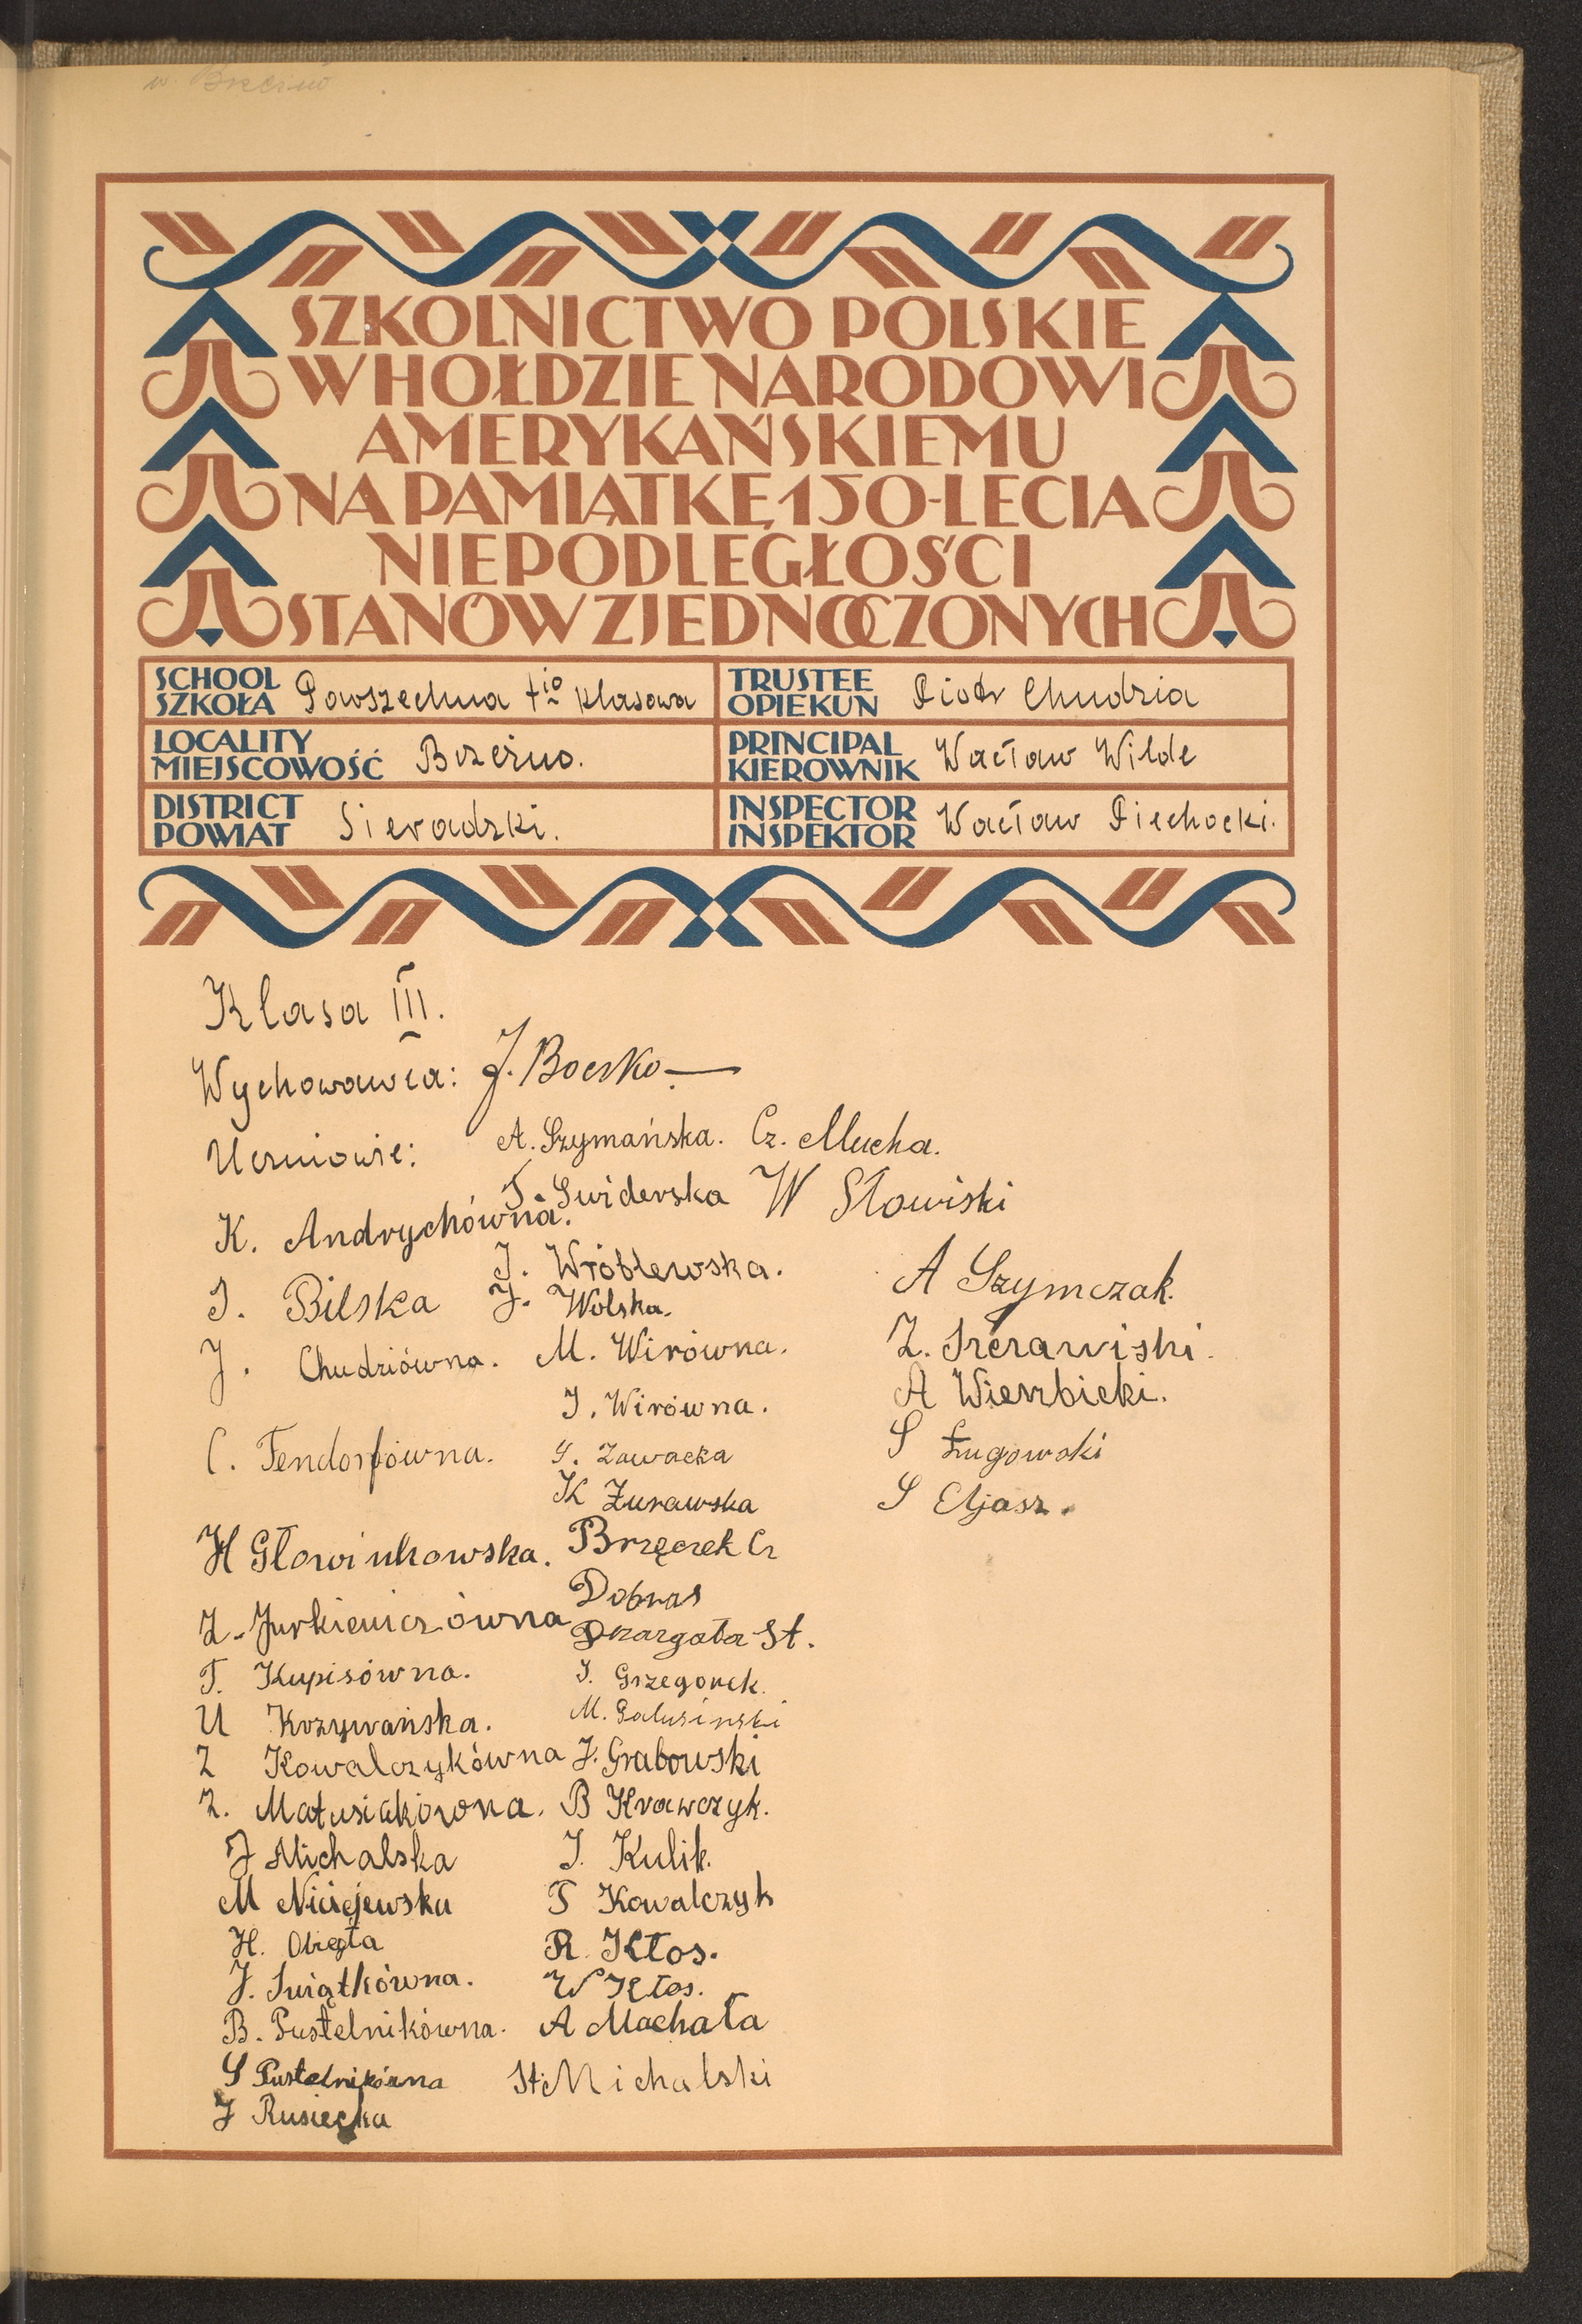 w. Brzeźno
SZKOLNICTWO POLSKIE
W HOŁDZIE NARODOWI
AMERYKAŃSKIEMU
NA PAMIĄTKĘ 150-LECIA
NIEPODLEGŁOŚCI
STANÓW ZJEDNOCZONYCH
SCHOOL
SZKOŁA Powszechna 7io klasowa
TRUSTEE
OPIEKUN Piotr Chudzia
LOCALITY
MIEJSCOWOŚĆ Brzeźno.
PRINCIPAL
KIEROWNIK Wacław Wilde
DISTRICT
POWIAT Sieradzki.
INSPECTOR
INSPEKTOR Wacław Piechocki.
Klasa III.
Wychowawca: J. Boczko
Uczniowie:
K. Andrychówna.
J. Bilska
J. Chudziówna.
C. Fendorfówna.
H Głowinkowska.
Z. Jurkiewiczówna
T. Kupisówna.
U Krzywańska.
Z Kowalczykówna
Z. Matusiakówna.
J Michalska
M Niciejewska
H. Obięta
J. Swiątkówna.
B. Pustelnikówna.
S Pustelnikówna
J Rusiecka
A. Szymańska.
T. Swiderska
J. Wróblewska.
J. Wolska.
M. Wirówna.
J. Wirówna.
G. Zawacka
K Żurawska
Brzęczek Cz
Dobras
Drzargota St.
J. Grzegorek.
M. Galusinski
J. Grabowski
B Krawczyk.
J. Kulik.
T Kowalczyk
R. Kłos.
W Kłos.
A Machała
St. Michalski
Cz. Mucha.
W Słowiski
A Szymczak.
Z. Szczrawiski.
A Wierzbicki.
S Ługowski
S Eljasz.